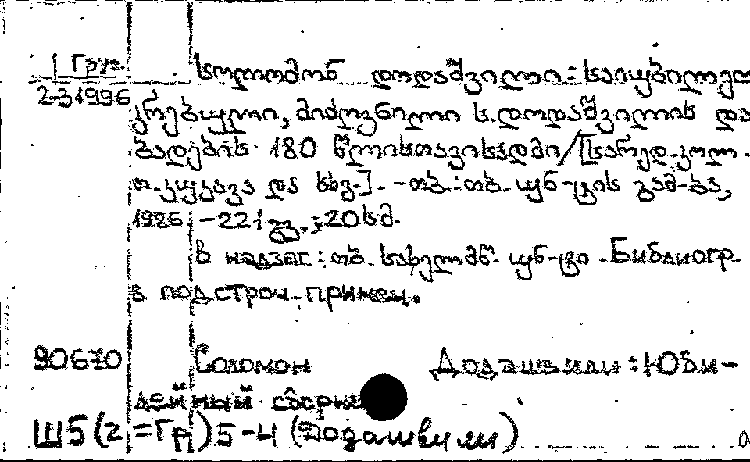 Груз. სოლომონ დოდაშვილი : საიუბილეო
2-31996 კრებული, მიძღვნილი ს. დოდაშვილის და
ბადების 180 წლისთავისადმი / [სარედ. კოლ.
თ. კუკავა და სხვ.]. - თბ. : თბ. უნ-ტის გამ-ბა,
1986 - 221 გვ. ; 20 სმ.
В надзаг : თბ. სახელმწ. უნ-ტი. Библиогр.
в подстроч. примеч.
90670 Соломон Додашвили : Юби-
лейный сборник
Ш5(2=Гр)5-4 (Додашвили)